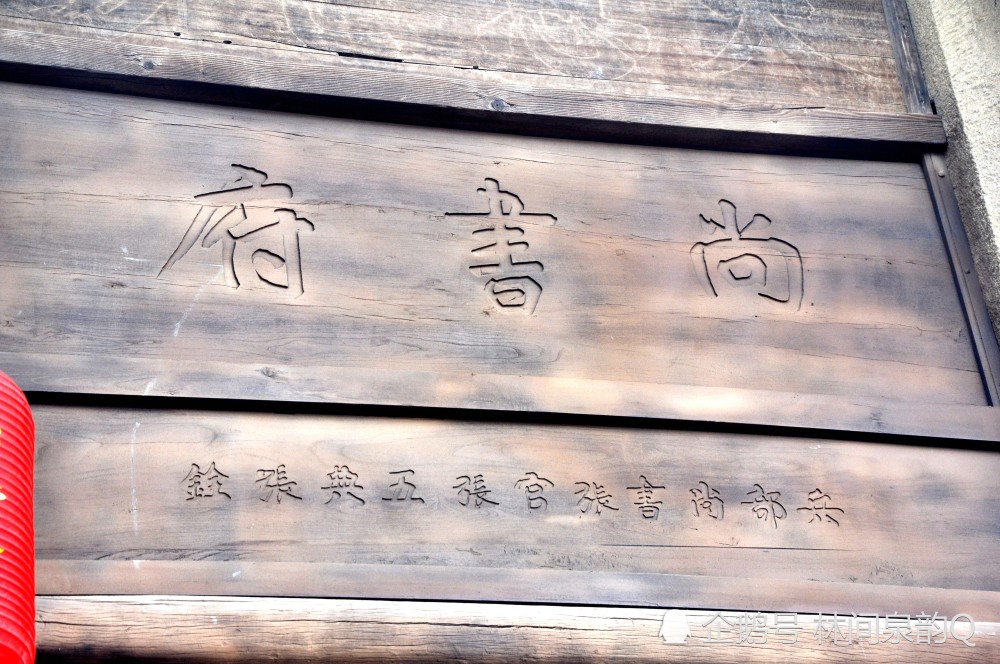 尚書府
兵部尚書張官張五典張銓
企鹅号 林间泉韵Q